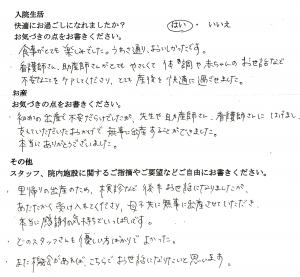 入院生活
快適にお過ごしになれましたか？ はい ・ いいえ
お気づきの点をお書きください。
・食事がとても楽しみでした。うわさ通り、おいしかったです。
・看護師さん、助産師さんがとてもやさしくて 体調や赤ちゃんのお世話など
不安なことをケアしてくださり、とても 産後を快適に過ごせました。
お産
お気づきの点をお書きください。
・初めての出産で不安だらけでしたが、先生や助産師さん、看護師さんにはげまし
をしていただいたおかげで 無事に出産することができました。
本当にありがとうございました。
その他
スタッフ、院内施設に関するご指摘やご要望などご自由にお書きください。
・里帰りの出産のため、検診など 後半お世話になりましたが、
あたたかく受け入れてくださり、母子共に無事に出産させていただき
本当に感謝の気持ちでいっぱいです。
・どのスタッフさんも優しい方ばかりで よかった。
・また機会があれば、こちらでお世話になりたいと思います。